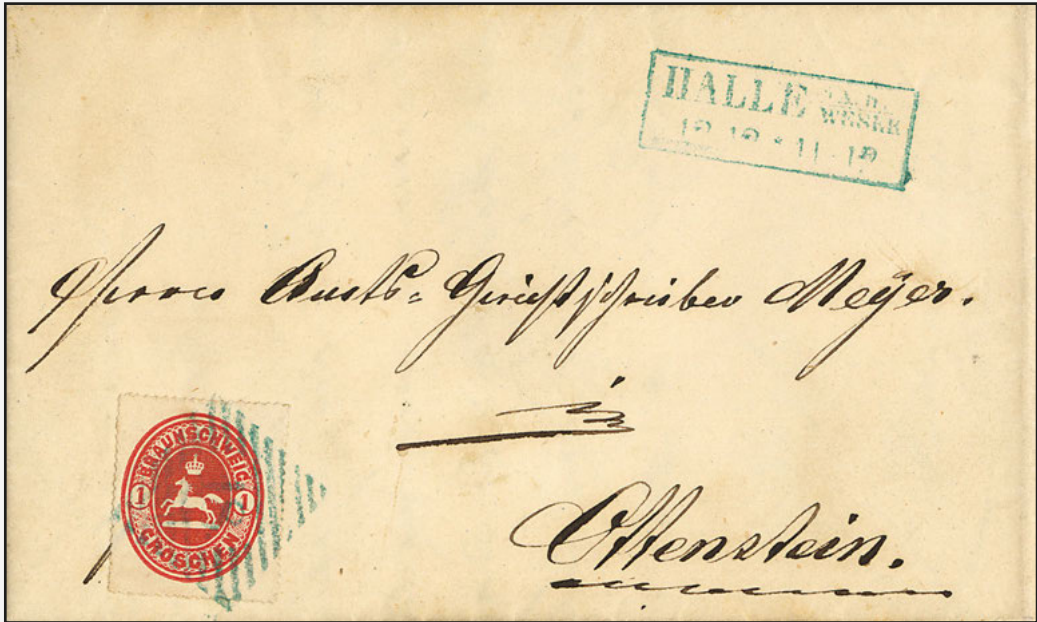 HALLE A. D.
WESER
Herrn Amts= Gerichtschreiber Meyer.
in
Ottenstein.
BRAUNSCHWEIG
1 1
GROSCHEN